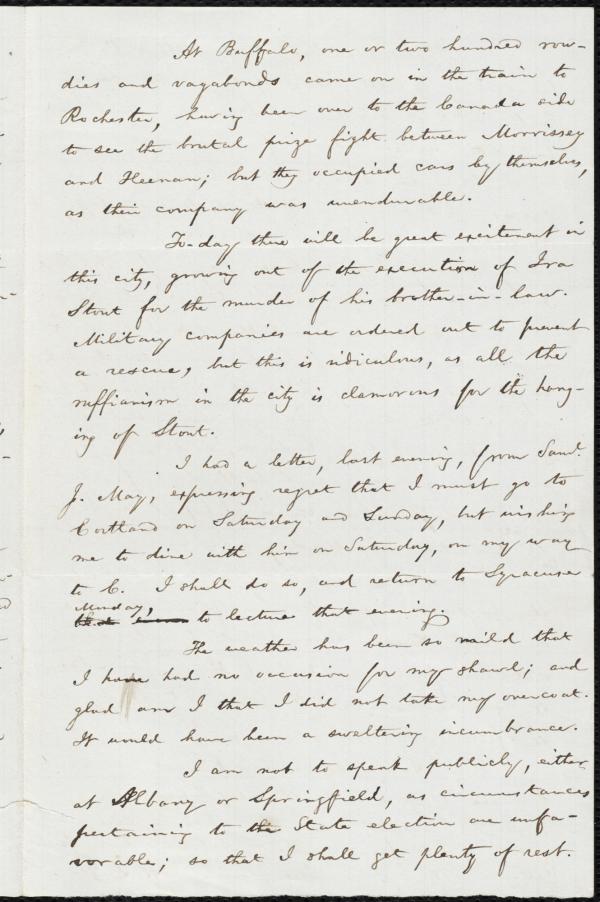 At Buffalo, one or two hundred row-
dies and vagabonds came on in the train to
Rochester, having been over to the Canada side
to see the brutal prize fight between Morrissey
and Heenan; but they occupied cars by themselves,
as their company was unendurable.
To-day there will be great excitement in
this city, growing out of the execution of Ira
Stout for the murder of his brother-in-law.
Military companies are ordered out to prevent
a rescue, but this is ridiculous, as all the
ruffianism in the city is clamorous for the hang-
ing of Stout.
I had a letter, last evening, from Saml.
J. May, expressing regret that I must go to
Cortland on Saturday and Sunday, but wishing
me to dine with him on Saturday, on my way
to C. I shall do so, and return to Syracuse
Monday,
to lecture that evening.
The weather has been so mild that
I have had no occasion for my shawl; and
glad am I that I did not take my overcoat.
It would have been a sweltering incumbrance.
I am not to speak publicly, either
at Albany or Springfield, as circumstances
pertaining to the State election are unfa-
vorable; so that I shall get plenty of rest.